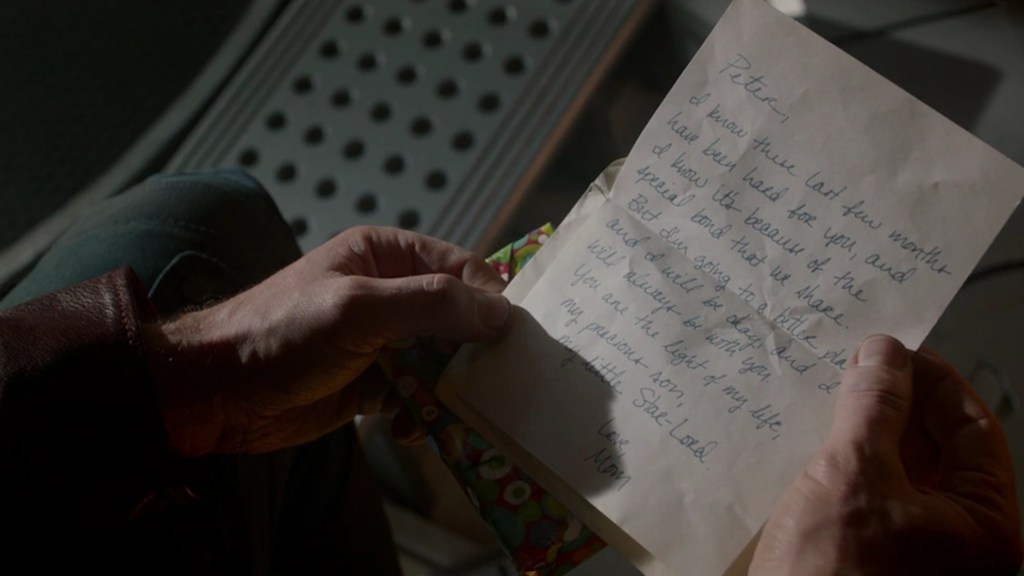 Peter,
I know these last few months
have been hard for you, and
I know it's because of the
special bond that we share.
But I'm going to a better place
and I will be okay, and I
will always be with you.
You are the light of my life,
my precious son,
my little Star-Lord.
Love
Mom